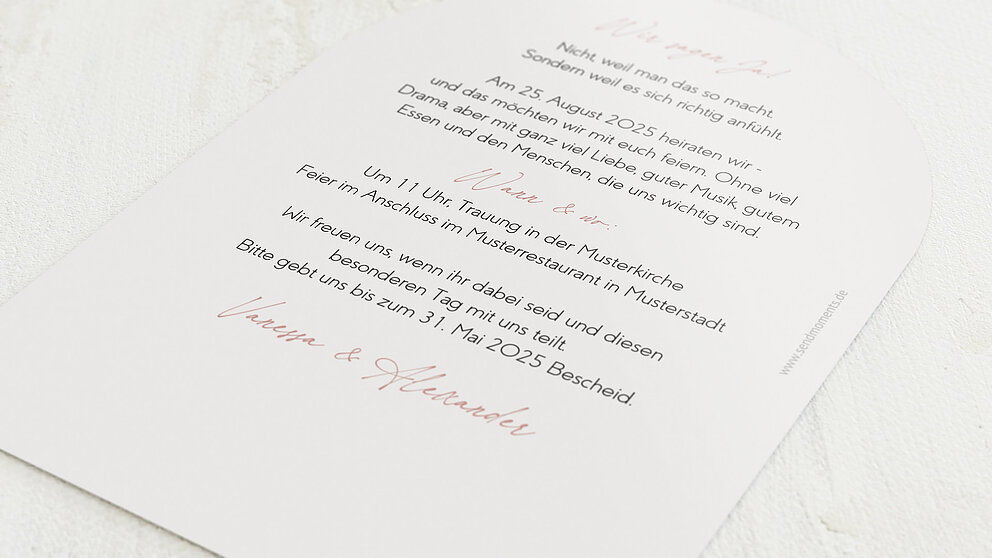 Wir sagen Ja!
Nicht, weil man das so macht.
Sondern weil es sich richtig anfühlt.
Am 25. August 2025 heiraten wir -
und das möchten wir mit euch feiern. Ohne viel
Drama, aber mit ganz viel Liebe, guter Musik, gutem
Essen und den Menschen, die uns wichtig sind.
Wann & wo:
Um 11 Uhr, Trauung in der Musterkirche
Feier im Anschluss im Musterrestaurant in Musterstadt
Wir freuen uns, wenn ihr dabei seid und diesen
besonderen Tag mit uns teilt.
Bitte gebt uns bis zum 31. Mai 2025 Bescheid.
Vanessa & Alexander
www.sendmoments.de